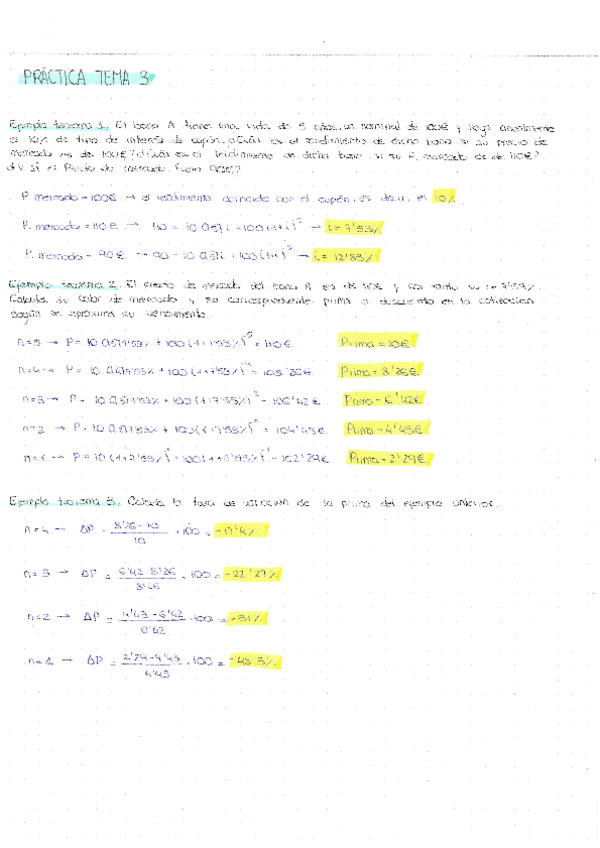 PRÁCTICA TEMA 3
Ejemplo teorema 1. El bono A tiene una vida de 5 años, un nominal de 100€ y paga anualmente
el 10% de tipo de interés de cupón. ¿Cuál es el rendimiento de dicho bono si su precio de
mercado es de 100€? ¿Cuál es el rendimiento de dicho bono si su P. mercado es de 110€?
¿Y si el Precio de mercado fuera 90€?
P. mercado = 100€ → el rendimiento coincide con el cupón, es decir, el 10%
P. mercado = 110€ → 110 = 10 a5¬i + 100(1+i)⁻⁵ → i = 7'53%
P. mercado = 90€ → 90 = 10 a5¬i + 100(1+i)⁻⁵ → i = 12'83%
Ejemplo teorema 2. El precio de mercado del bono A es de 110€ y por tanto su i = 7'53%.
Calcula su valor de mercado y su correspondiente prima o descuento en la cotización
según se aproxima su vencimiento.
n=5 → P = 10 a5¬7'53% + 100(1+7'53%)⁻⁵ = 110€ Prima = 10€
n=4 → P = 10 a4¬7'53% + 100(1+7'53%)⁻⁴ = 108'26€ Prima = 8'26€
n=3 → P = 10 a3¬7'53% + 100(1+7'53%)⁻³ = 106'42€ Prima = 6'42€
n=2 → P = 10 a2¬7'53% + 100(1+7'53%)⁻² = 104'43€ Prima = 4'43€
n=1 → P = 10(1+7'53%)⁻¹ + 100(1+7'53%)⁻¹ = 102'29€ Prima = 2'29€
Ejemplo teorema 3. Calcula la tasa de variación de la prima del ejemplo anterior.
n=4 → ΔP = 8'26-10 / 10 · 100 = -17'4%
n=3 → ΔP = 6'42-8'26 / 8'26 · 100 = -22'27%
n=2 → ΔP = 4'43-6'42 / 6'42 · 100 = -31%
n=1 → ΔP = 2'29-4'43 / 4'43 · 100 = -48'3%